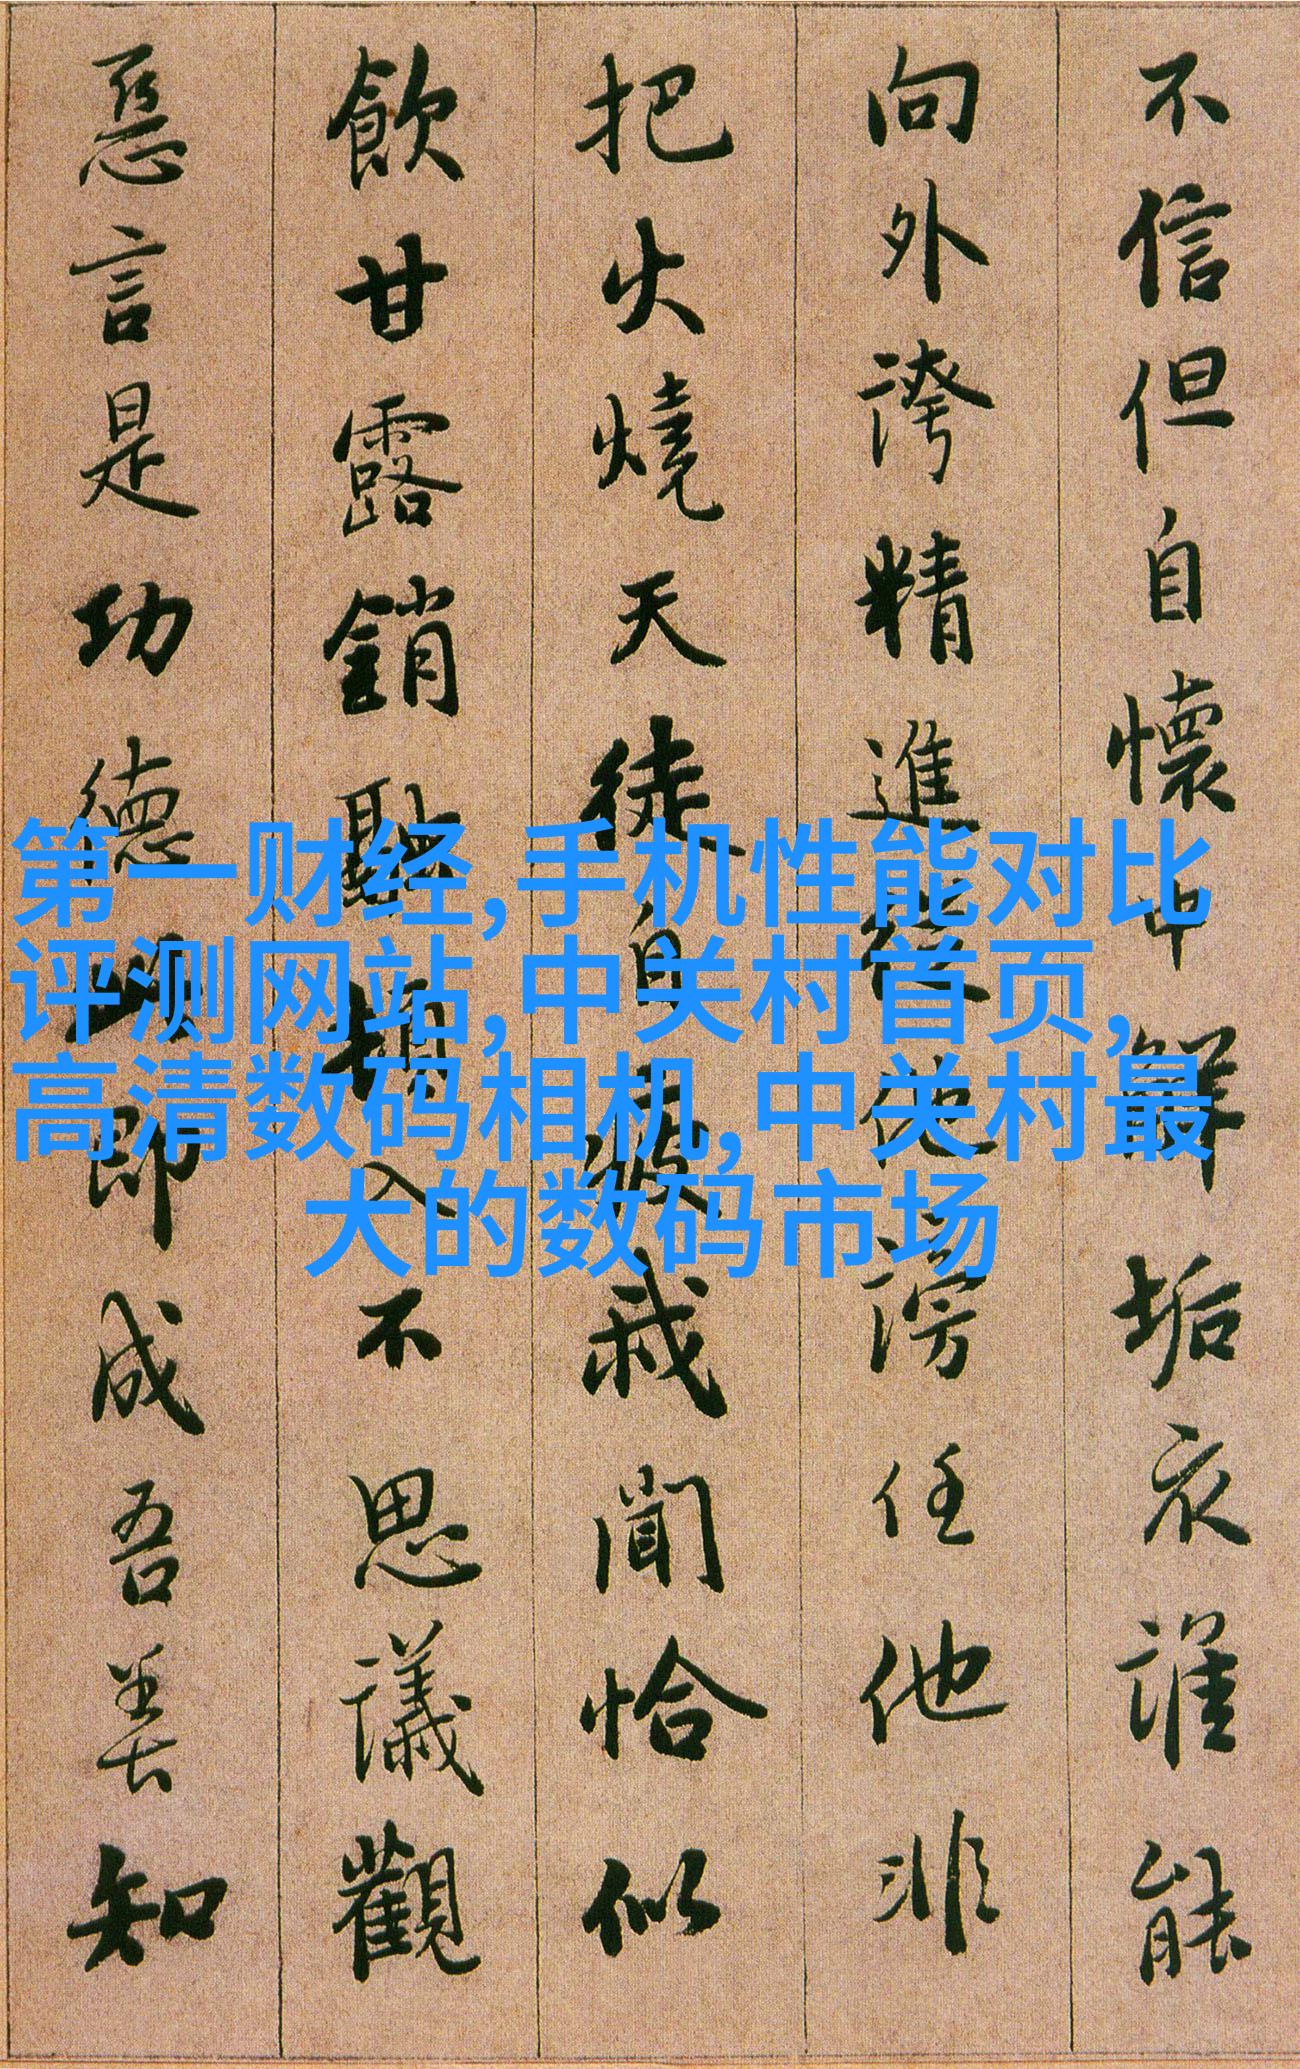 不信但自懷中解垢衣誰能
向外誇精進從他謗任他非
把火燒天徒自疲我聞恰似
飲甘露銷融頓入不思議觀
惡言是功德此即成吾善知
第一财经,手机性能对比
评测网站,中关村首页,
高清数码相机,中关村最
大的数码市场